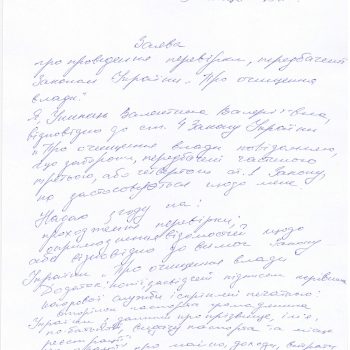 Заява
про проведення перевірки, передбаченої
Законом України „Про очищення
влади"
Я, Валентина Валеріївна,
відповідно до ст. 4 Закону України
„Про очищення влади повідомляю,
що заборони, передбачені частиною
третьою або четвертою ст. 1 Закону,
не застосовуються щодо мене
Надаю згоду на:
проходження перевірки;
оприлюднення відомостей щодо
себе відповідно до вимог Закону
України „Про очищення влади
Додатки: копії, засвідчені підписом керівника
служби і скріплені печаткою:
сторінок паспорта громадянина
України з даними про прізвище, ім'я,
по батькові, видачу паспорта та місце
реєстрації
про майно, доходи, витрати